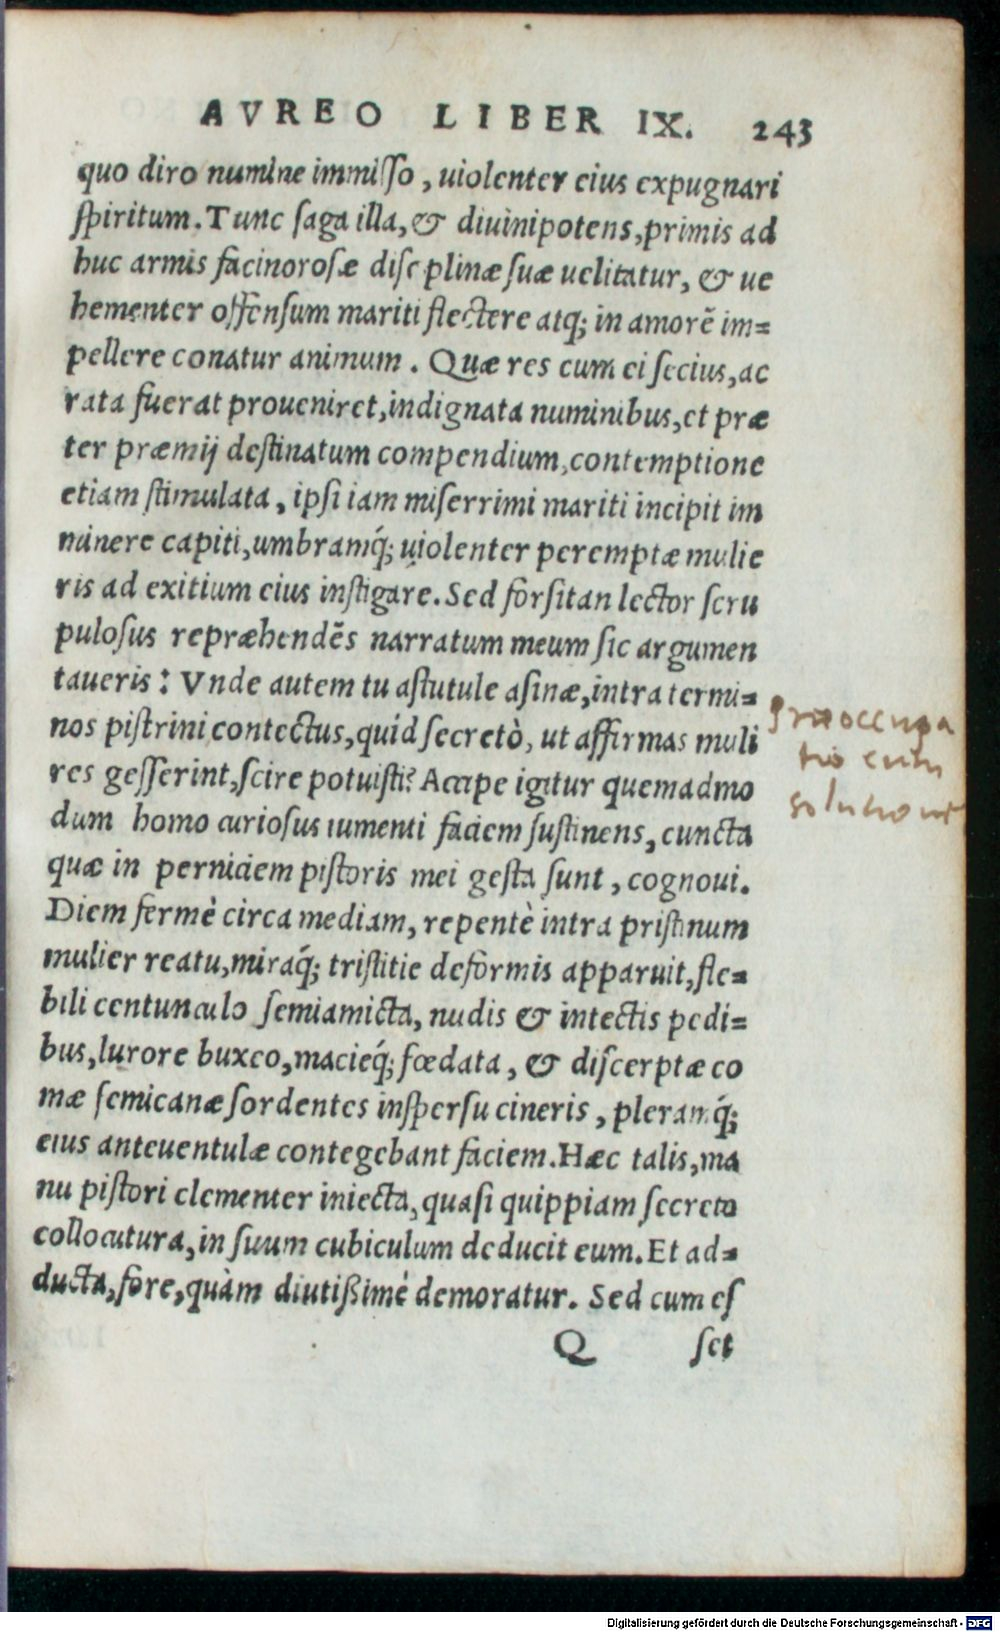 AVREO LIBER IX. 243
quo diro numine immiſſo, uiolenter eius expugnari
ſpiritum. Tunc ſaga illa, & diuinipotens, primis ad
huc armis facinoroſæ diſc plinæ ſuæ uelitatur, & ue
hementer offenſum mariti flectere atq; in amorẽ im=
pellere conatur animum. Quæ res cum ei ſecius, ac
rata fuerat proueniret, indignata numinibus, et præ
ter præmij deſtinatum compendium, contemptione
etiam ſtimulata, ipſi iam miſerrimi mariti incipit im
minere capiti, umbramq́; uiolenter peremptæ mulie
ris ad exitium eius inſtigare. Sed forſitan lector ſcru
puloſus repræhendẽs narratum meum ſic argumen
taueris: Vnde autem tu aſtutule aſinæ, intra termi=
nos piſtrini contectus, quid ſecretò, ut affirmas muli
res geſſerint, ſcire potuiſti? Accipe igitur quemadmo
dum homo curioſus iumenti faciem ſuſtinens, cuncta
quæ in perniciem piſtoris mei geſta ſunt, cognoui.
Diem fermè circa mediam, repentè intra priſtinum
mulier reatu, miraq́; triſtitie deformis apparuit, fle=
bili centunculo ſemiamicta, nudis & intectis pedi=
bus, lurore buxeo, macieq́; fœdata, & diſcerptæ co
mæ ſemicanæ ſordentes inſperſu cineris, pleramq́;
eius anteuentulæ contegebant faciem. Hæc talis, ma
nu piſtori clementer iniecta, quaſi quippiam ſecreto
collocutura, in ſuum cubiculum deducit eum. Et ad=
ducta, fore, quàm diutißimè demoratur. Sed cum eſ
Q ſet
præoccupa
tio cum
solutione
Digitalisierung gefördert durch die Deutsche Forschungsgemeinschaft - DFG